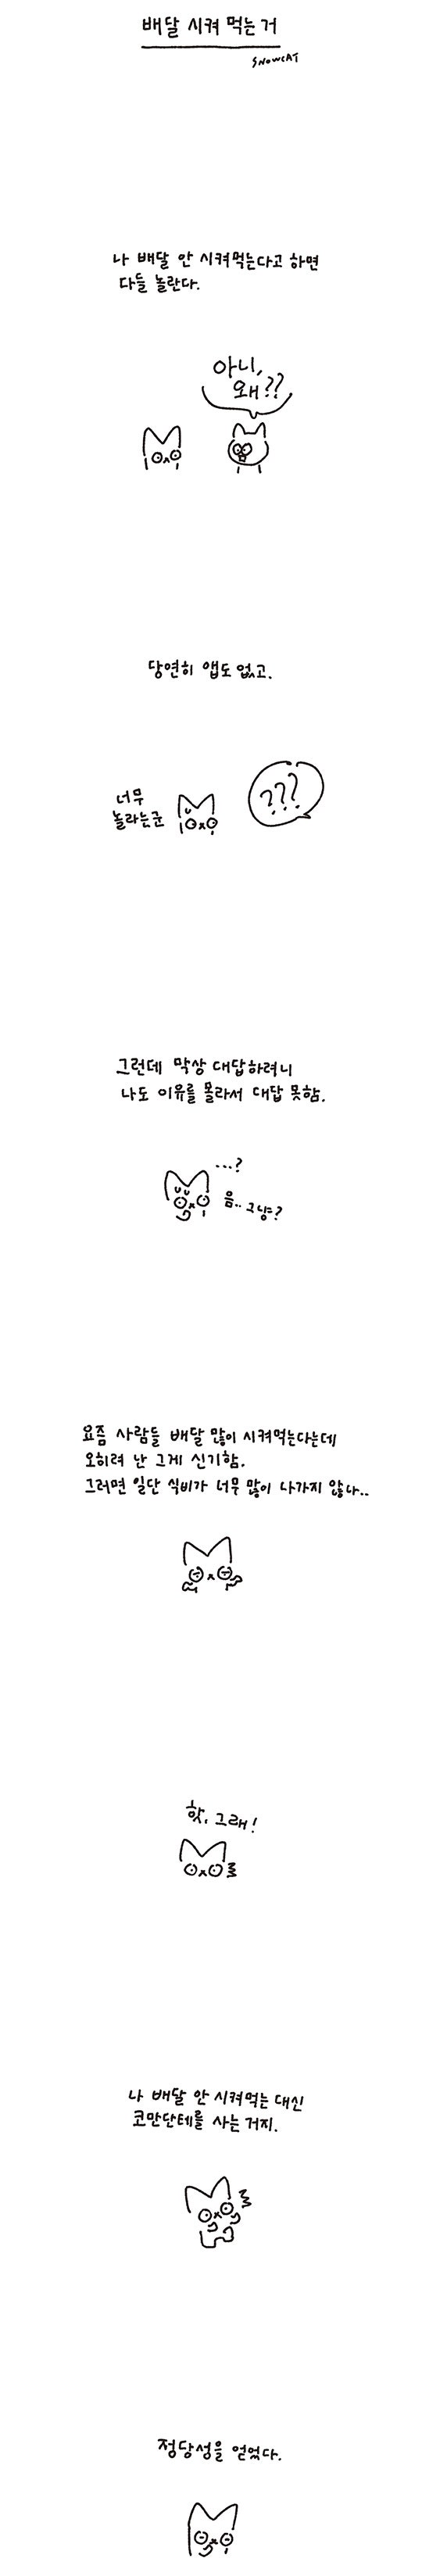 배달 시켜 먹는 거
SNOWCAT
나 배달 안 시켜먹는다고 하면
다들 놀란다.
아니,
왜??
당연히 앱도 없고.
너무
놀라는군
???
그런데 막상 대답하려니
나도 이유를 몰라서 대답 못함.
...?
음.. 그냥?
요즘 사람들 배달 많이 시켜먹는다는데
오히려 난 그게 신기함.
그러면 일단 식비가 너무 많이 나가지 않나..
핫, 그래!
나 배달 안 시켜먹는 대신
코만단테를 사는 거지.
정당성을 얻었다.